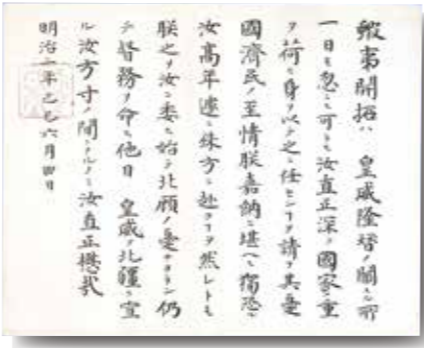 蝦夷開拓ハ　皇威隆替ノ關スル所
一日モ忽ニス可ラス汝直正深ク國家ノ重
ヲ荷ヒ身ヲ以テ之ニ任センヿヲ請フ其憂
國濟民ノ至情朕嘉納ニ堪ヘス獨恐ル
汝高年遽ニ殊方ニ赴クヿヲ然レトモ
朕之ヲ汝ニ委シ始テ北顧ノ憂ナカラン仍
テ督務ヲ命ス他日　皇威ヲ北疆ニ宣
ル汝方寸ノ間ニアルノミ汝直正懋哉
明治二年己巳六月四日